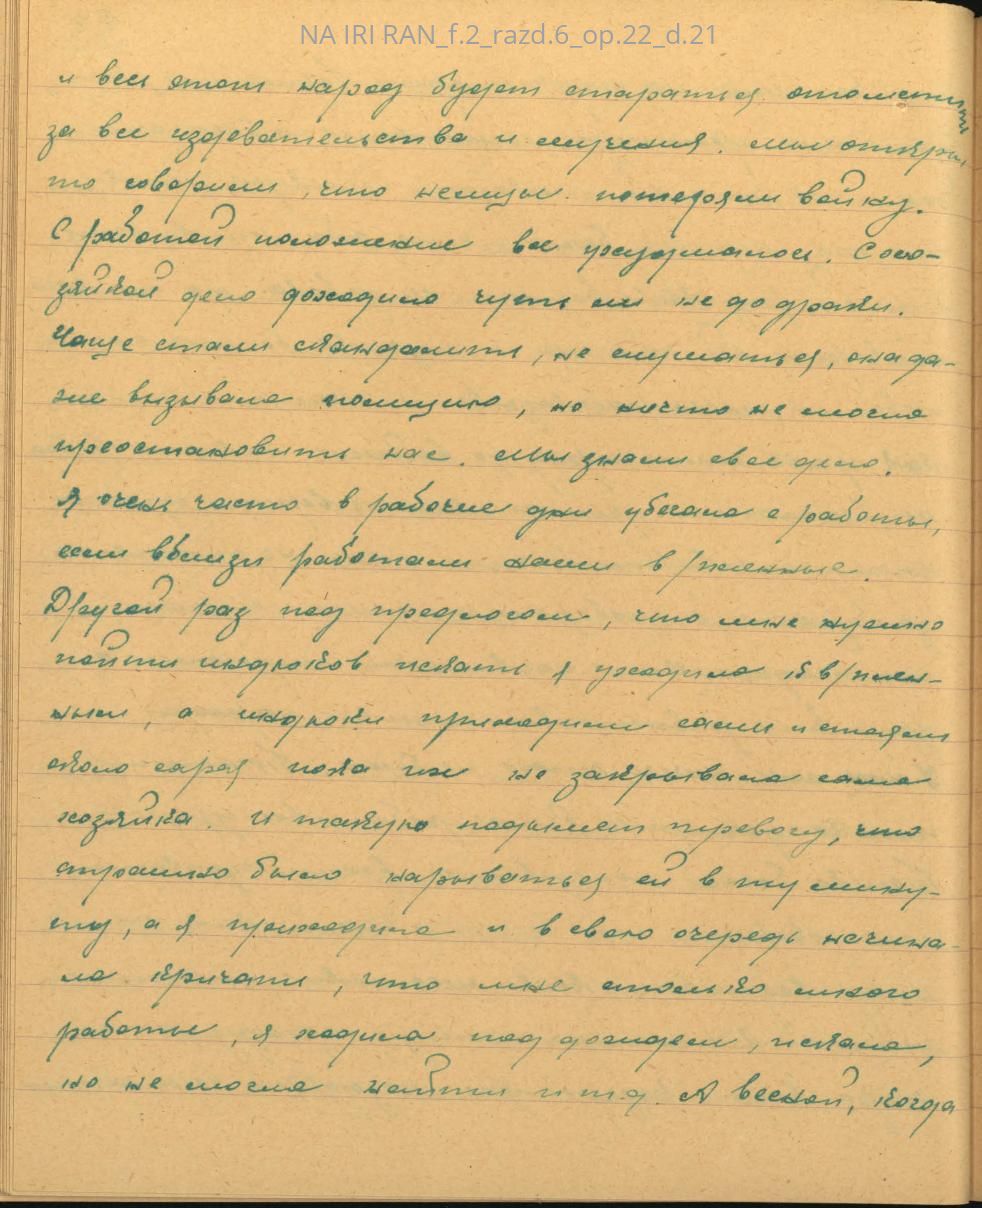 NA IRI RAN_f.2_razd.6_op.22_d.21
и весь этот народ будет стараться отомстить
за все издевательства и мучения. Мы откры-
то говорили, что немцы потеряли войну.
С работой положение все ухудшалось. С хо-
зяйкой дело доходило чуть ли не до драки.
Чаще стали скандалить, не слушаться, она да-
же вызывала полицию, но ничто не могло
приостановить нас. Мы знали свое дело.
Я очень часто в рабочие дни убегала с работы,
если вблизи работали наши в/пленные.
Другой раз под предлогом, что мне нужно
пойти индюков искать я уходила к в/плен-
ным, а индюки приходили сами и стояли
около сарая пока их не закрывала сама
хозяйка. И такую подымет тревогу, что
страшно было нарываться ей в ту мину-
ту, а я приходила и в свою очередь начина-
ла кричать, что мне столько много
работы, я ходила под дождем, искала,
но не могла найти и т д. А весной, когда